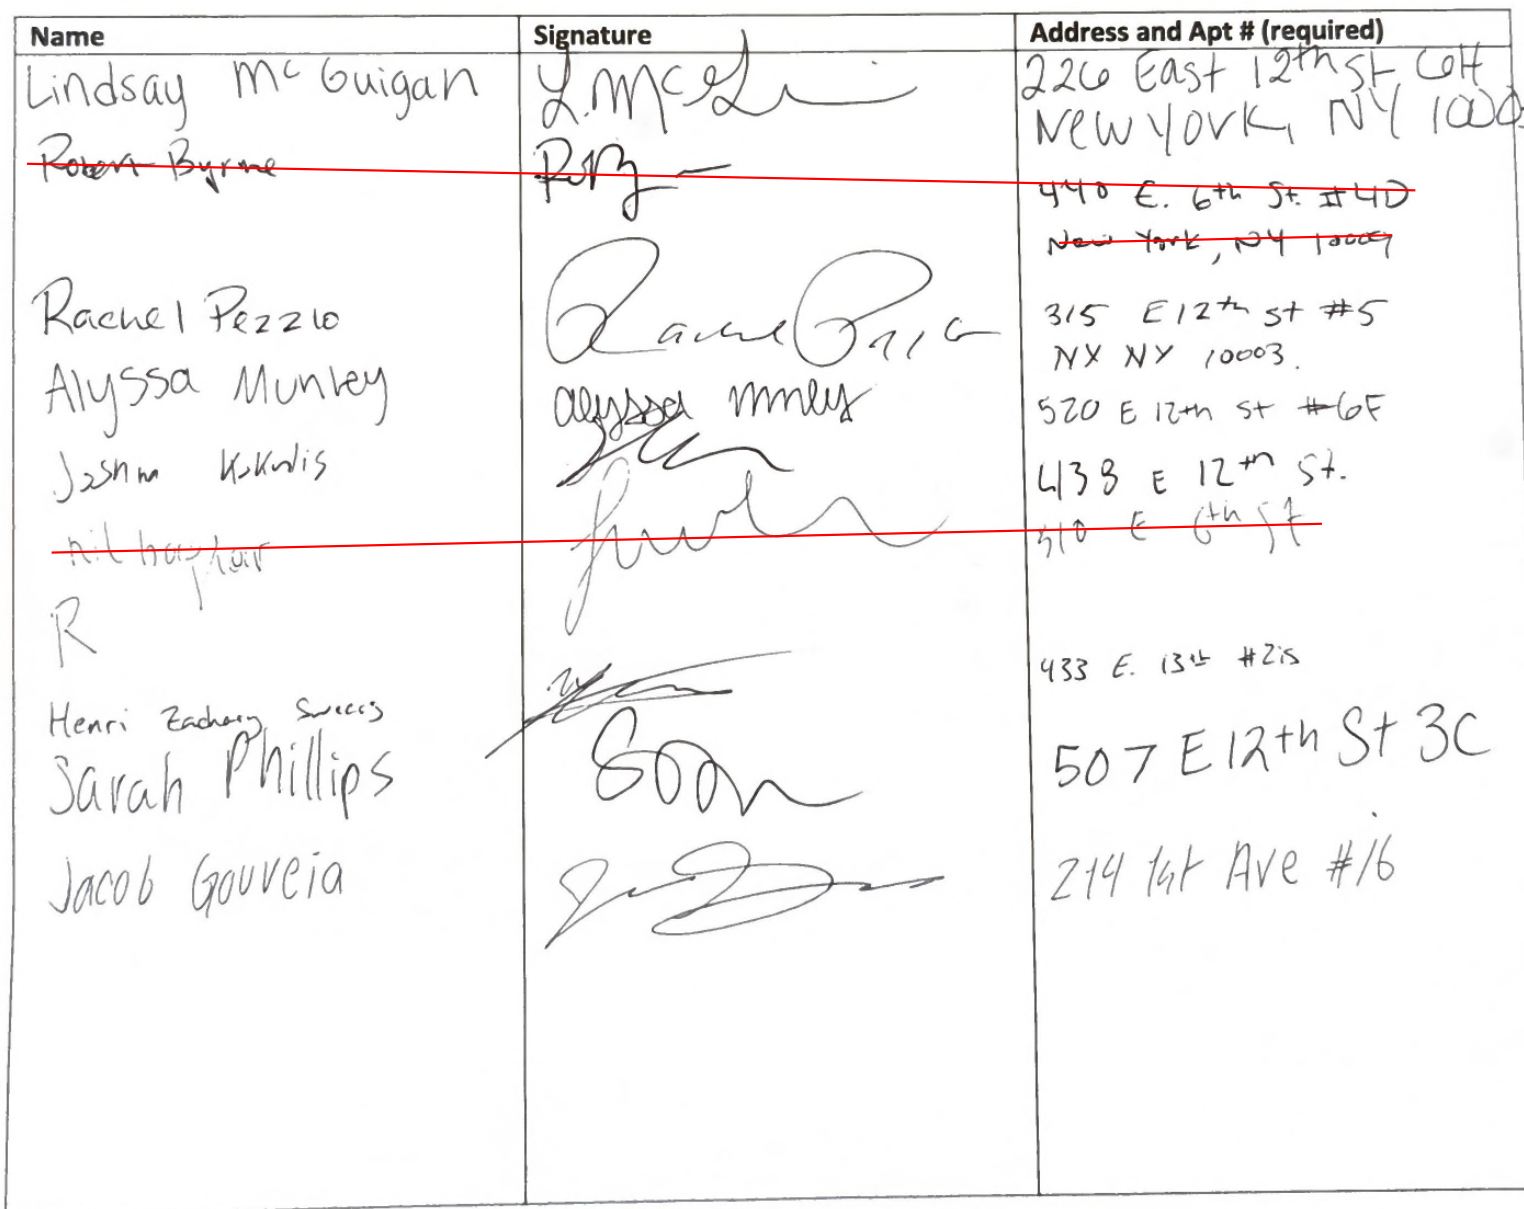 Name Signature Address and Apt # (required)
Lindsay McGuigan L.McG 226 East 12th St 6H
New York, NY
Robert Byrne
440 E. 6th St. #4D
New York, NY 10009
Rachel Pezzlo Rachel 315 E 12th st #5
NY NY 10003.
Alyssa Munley alyssa mnley 520 E 12th st #6F
438 E 12th St.
510 E 6th St
R
433 E. 13th
Henri Zachary
Sarah Phillips 507 E 12th St 3C
Jacob Gouveia 214 1st Ave #16